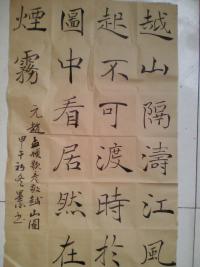 越山隔濤江風
起不可渡時於
圖中看居然在
煙霧
元趙孟頫題彥敬越山圖
甲午冬書